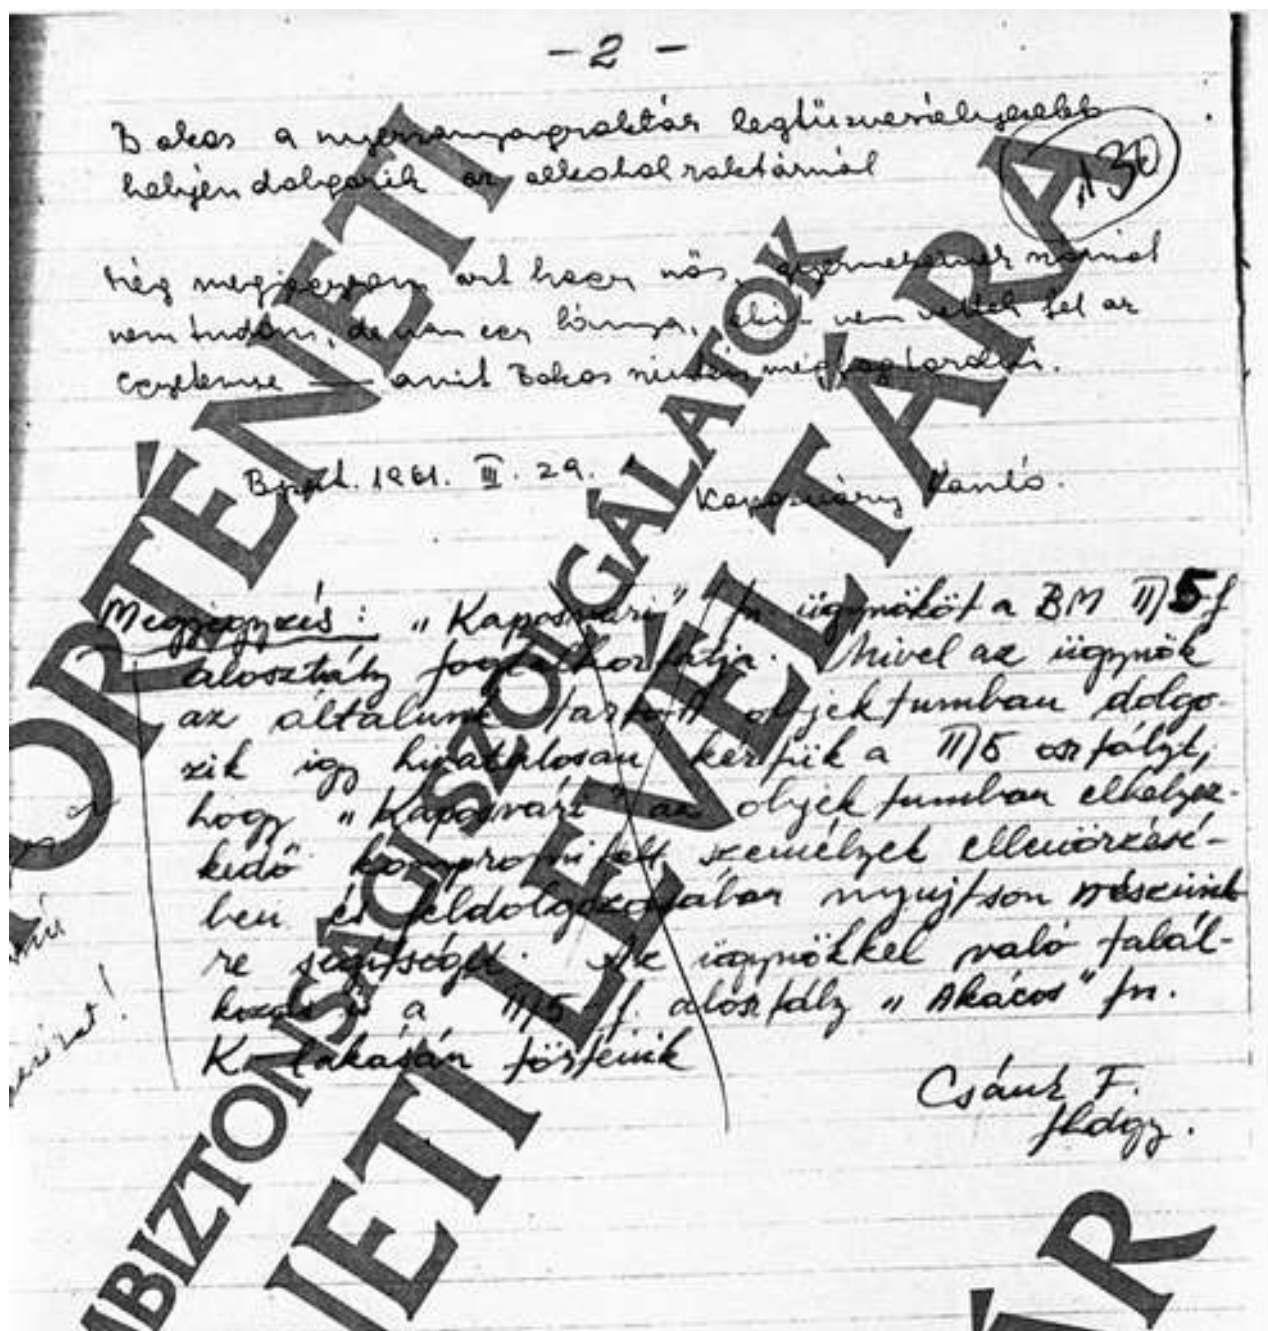 - 2 -
Bakos a nyersanyagraktár legtűzveszélyesebb
130
helyén dolgozik az alkohol raktárnál
Még megjegyzem azt hogy nős, gyermekeinek számát
nem tudom, de van egy lánya, akit nem vettek fel az
egyetemre — amit Bakos
Bpest. 1961. III. 29.
Megjegyzés: "Kaposvári" fn. ügynököt a BM II/5-f
alosztály foglalkoztatja. Mivel az ügynök
az általunk tartott objektumban dolgo-
zik így hivatalosan kértük a II/5 osztályt,
hogy "Kaposvári" az objektumban elhelyez-
kedő kompromitált személyek ellenőrzésé-
ben és feldolgozásában nyujtson részünk-
re segítséget. Az ügynökkel való talál-
kozás is a II/5 f. alosztály "Akácos" fn.
K. lakásán történik
Csánk F.
fhdgy.
TÖRTÉNETI
ÁLLAMBIZTONSÁGI SZOLGÁLATOK
LEVÉLTÁRA